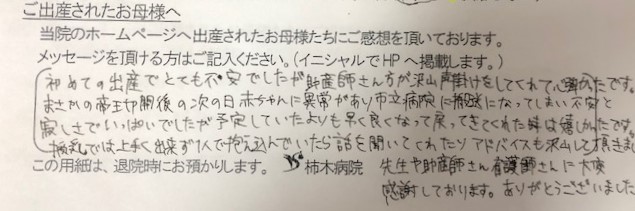 ご出産されたお母様へ
当院のホームページへ出産されたお母様たちにご感想を頂いております。
メッセージを頂ける方はご記入ください。(イニシャルでHPへ掲載します。)
初めての出産でとても不安でしたが助産師さん方が沢山声掛けをしてくれて心強かったです。
まさかの帝王切開後の次の日赤ちゃんに異常があり市立病院に搬送になってしまい不安と
寂しさでいっぱいでしたが予定していたよりも早く良くなって戻ってきてくれた時は嬉しかったです。
授乳では上手く出来ず1人で抱え込んでいたら話を聞いてくれたりアドバイスも沢山して頂きました
この用紙は、退院時にお預かりします。 柿木病院 先生や助産師さん看護師さんに大変
感謝しております。ありがとうございました